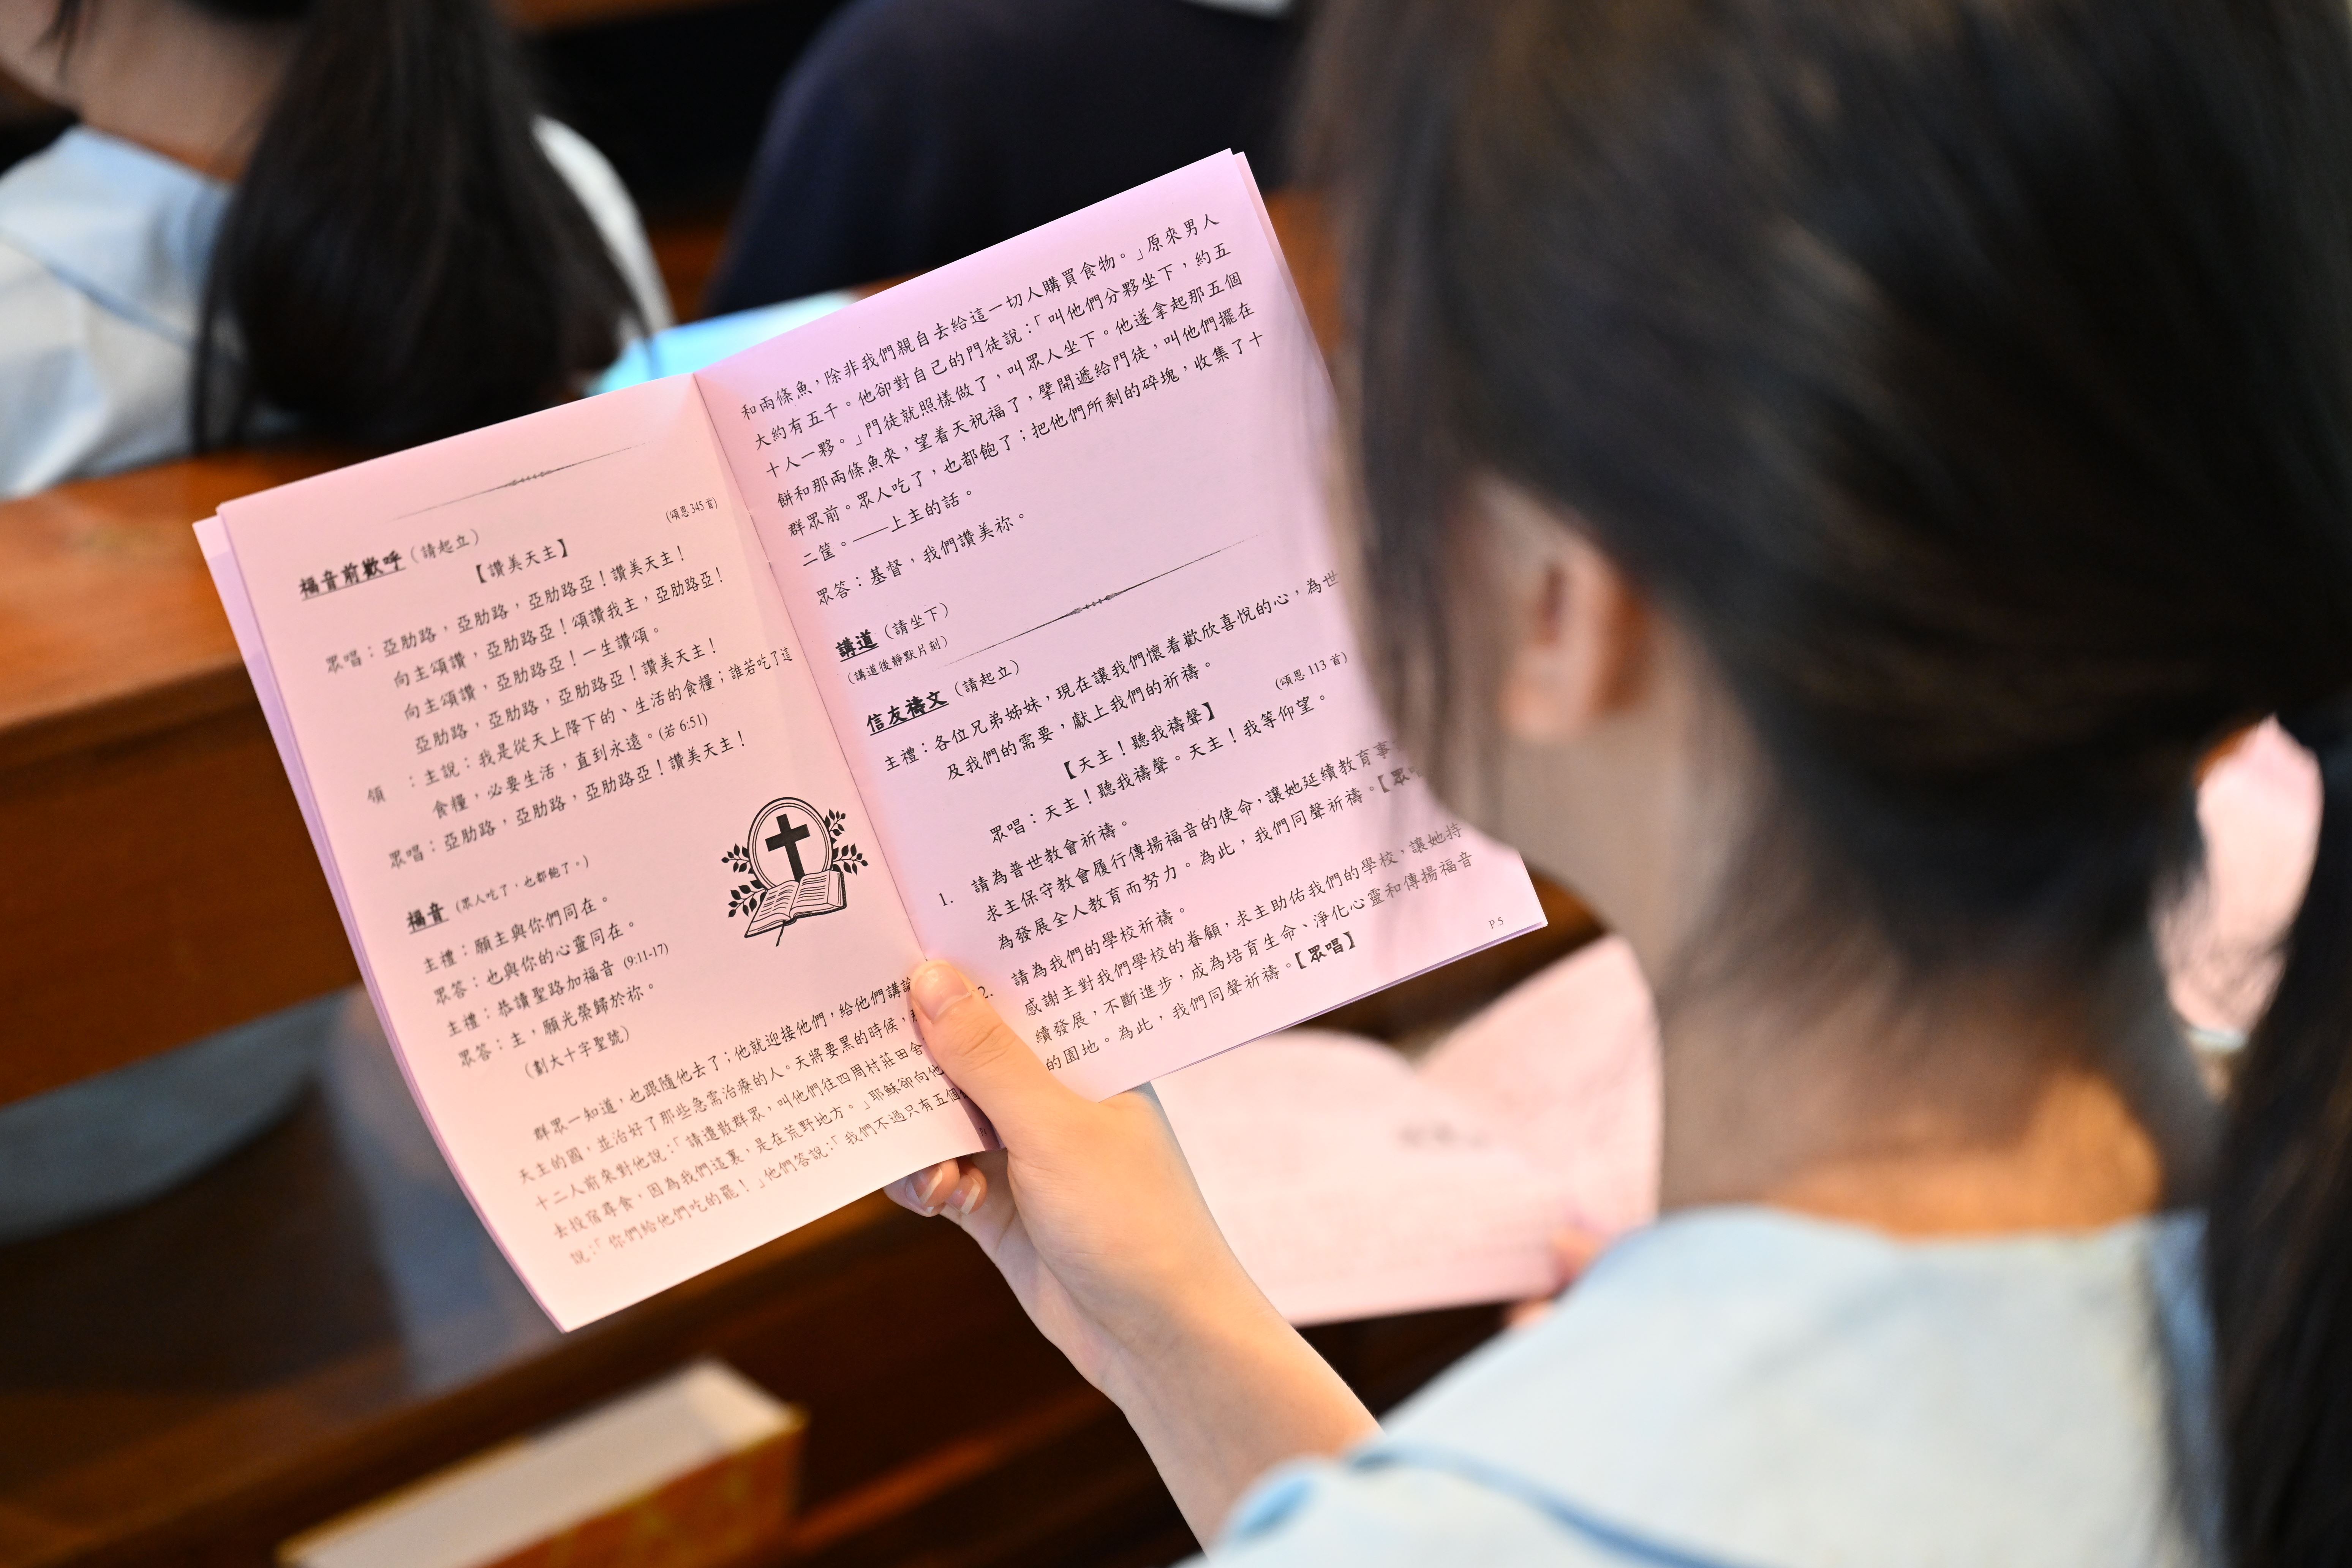 (頌恩 345 首)
福音前歡呼（請起立）
【讚美天主】
眾唱：亞肋路，亞肋路，亞肋路亞！讚美天主！
向主頌讚，亞肋路亞！頌讚我主，亞肋路亞！
向主頌讚，亞肋路亞！一生讚頌。
亞肋路，亞肋路，亞肋路亞！讚美天主！
領　：主說：我是從天上降下的、生活的食糧；誰若吃了這
食糧，必要生活，直到永遠。(若 6:51)
眾唱：亞肋路，亞肋路，亞肋路亞！讚美天主！
福音（眾人吃了，也都飽了。）
主禮：願主與你們同在。
眾答：也與你的心靈同在。
主禮：恭讀聖路加福音 (9:11-17)
眾答：主，願光榮歸於祢。
（劃大十字聖號）
群眾一知道，也跟隨他去了；他就迎接他們，給他們講論
天主的國，並治好了那些急需治療的人。天將要黑的時候，
十二人前來對他說：「請遣散群眾，叫他們往四周村莊田舍
去投宿尋食，因為我們這裏，是在荒野地方。」耶穌卻向他
說：「你們給他們吃的罷！」他們答說：「我們不過只有五個
和兩條魚，除非我們親自去給這一切人購買食物。」原來男人
大約有五千。他卻對自己的門徒說：「叫他們分夥坐下，約五
十人一夥。」門徒就照樣做了，叫眾人坐下。他遂拿起那五個
餅和那兩條魚來，望着天祝福了，擘開遞給門徒，叫他們擺在
群眾前。眾人吃了，也都飽了；把他們所剩的碎塊，收集了十
二筐。——上主的話。
眾答：基督，我們讚美祢。
講道（請坐下）
（講道後靜默片刻）
信友禱文（請起立）
主禮：各位兄弟姊妹，現在讓我們懷着歡欣喜悅的心，為世
及我們的需要，獻上我們的祈禱。
(頌恩 113 首)
【天主！聽我禱聲】
眾唱：天主！聽我禱聲。天主！我等仰望。
1. 請為普世教會祈禱。
求主保守教會履行傳揚福音的使命，讓她延續教育事
為發展全人教育而努力。為此，我們同聲祈禱。【眾
2. 請為我們的學校祈禱。
感謝主對我們學校的眷顧，求主助佑我們的學校，讓她持
續發展，不斷進步，成為培育生命、淨化心靈和傳揚福音
的園地。為此，我們同聲祈禱。【眾唱】
P.5